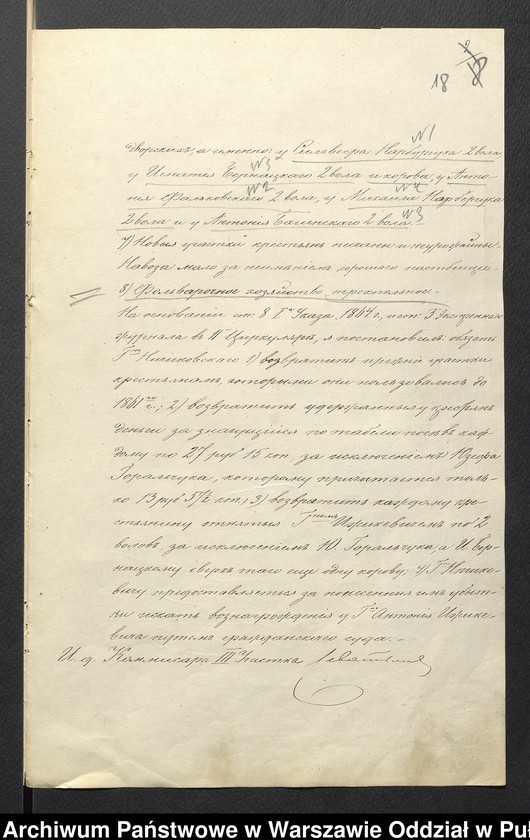 18
дворскихъ, а именно: у Сильвестра Нарбутука 2 вола,
№1
у Игнатія Чернацкаго 2 вола и корова, у Анто-
№3
нія Фальковскаго 2 вола, у Михаила Нарбутука
№2 №4
2 вола и у Антонія Басинскаго 2 вола.
№3
7) Новые участки крестьянъ песчаны и неурожайны.
Навоза мало за неимѣніемъ хорошаго пастбища.
8) Фольварочное хозяйство трехпольное.
На основаніи ст. 8 I Указа 1864 г., и ст. 3 
журнала въ II Циркулярѣ, я постановилъ: обязать
Гна 1) возвратить прежніе участки
крестьянамъ, которыми они пользовались до
1861 г.; 2) возвратить удержанныя у крестьянъ
деньги за значущійся по табели посѣвъ каж-
дому по 27 руб 15 коп. за исключеніемъ Юзефа
Горальчука, которому причитается толь-
ко 13 руб 57½ коп.; 3) возвратить каждому кре-
стьянину отнятыя Гномъ Ицикевичемъ по 2
воловъ, за исключеніемъ Ю. Горальчука, а И. Чер-
нацкому сверхъ того еще одну корову; 4) Г.
вичу предоставляется за понесенные имъ убыт-
ки искать вознагражденія у Гна Антонія Ицике-
вича путемъ гражданскаго суда.
И. д. Коммисара III Участка
Archiwum Państwowe w Warszawie Oddział w Pu